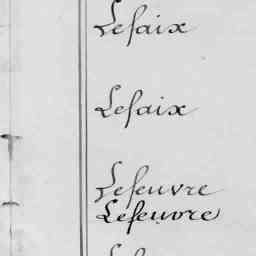 Lefaix
Lefaix
Lefeuvre
Lefeuvre